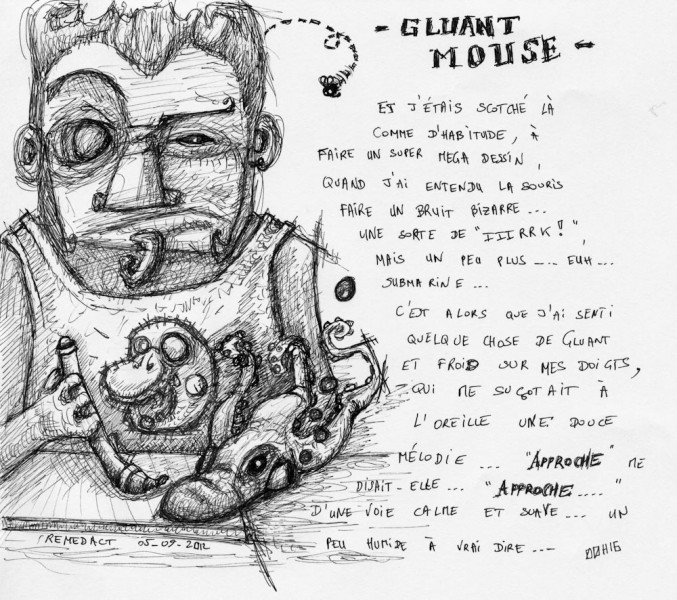 - GLUANT
MOUSE -
ET J'ÉTAIS SCOTCHÉ LÀ
COMME D'HABITUDE, À
FAIRE UN SUPER MEGA DESSIN,
QUAND J'AI ENTENDU LA SOURIS
FAIRE UN BRUIT BIZARRE...
UNE SORTE DE "IIIRRK!",
MAIS UN PEU PLUS .... EUH...
SUBMARINE...
C'EST ALORS QUE J'AI SENTI
QUELQUE CHOSE DE GLUANT
ET FROID SUR MES DOIGTS,
QUI ME SUÇOTAIT À
L'OREILLE UNE DOUCE
MÉLODIE ... "APPROCHE" ME
DISAIT-ELLE... "APPROCHE...."
D'UNE VOIE CALME ET SUAVE... UN
PEU HUMIDE À VRAI DIRE...
00H16
REMEDACT 05-09-2012